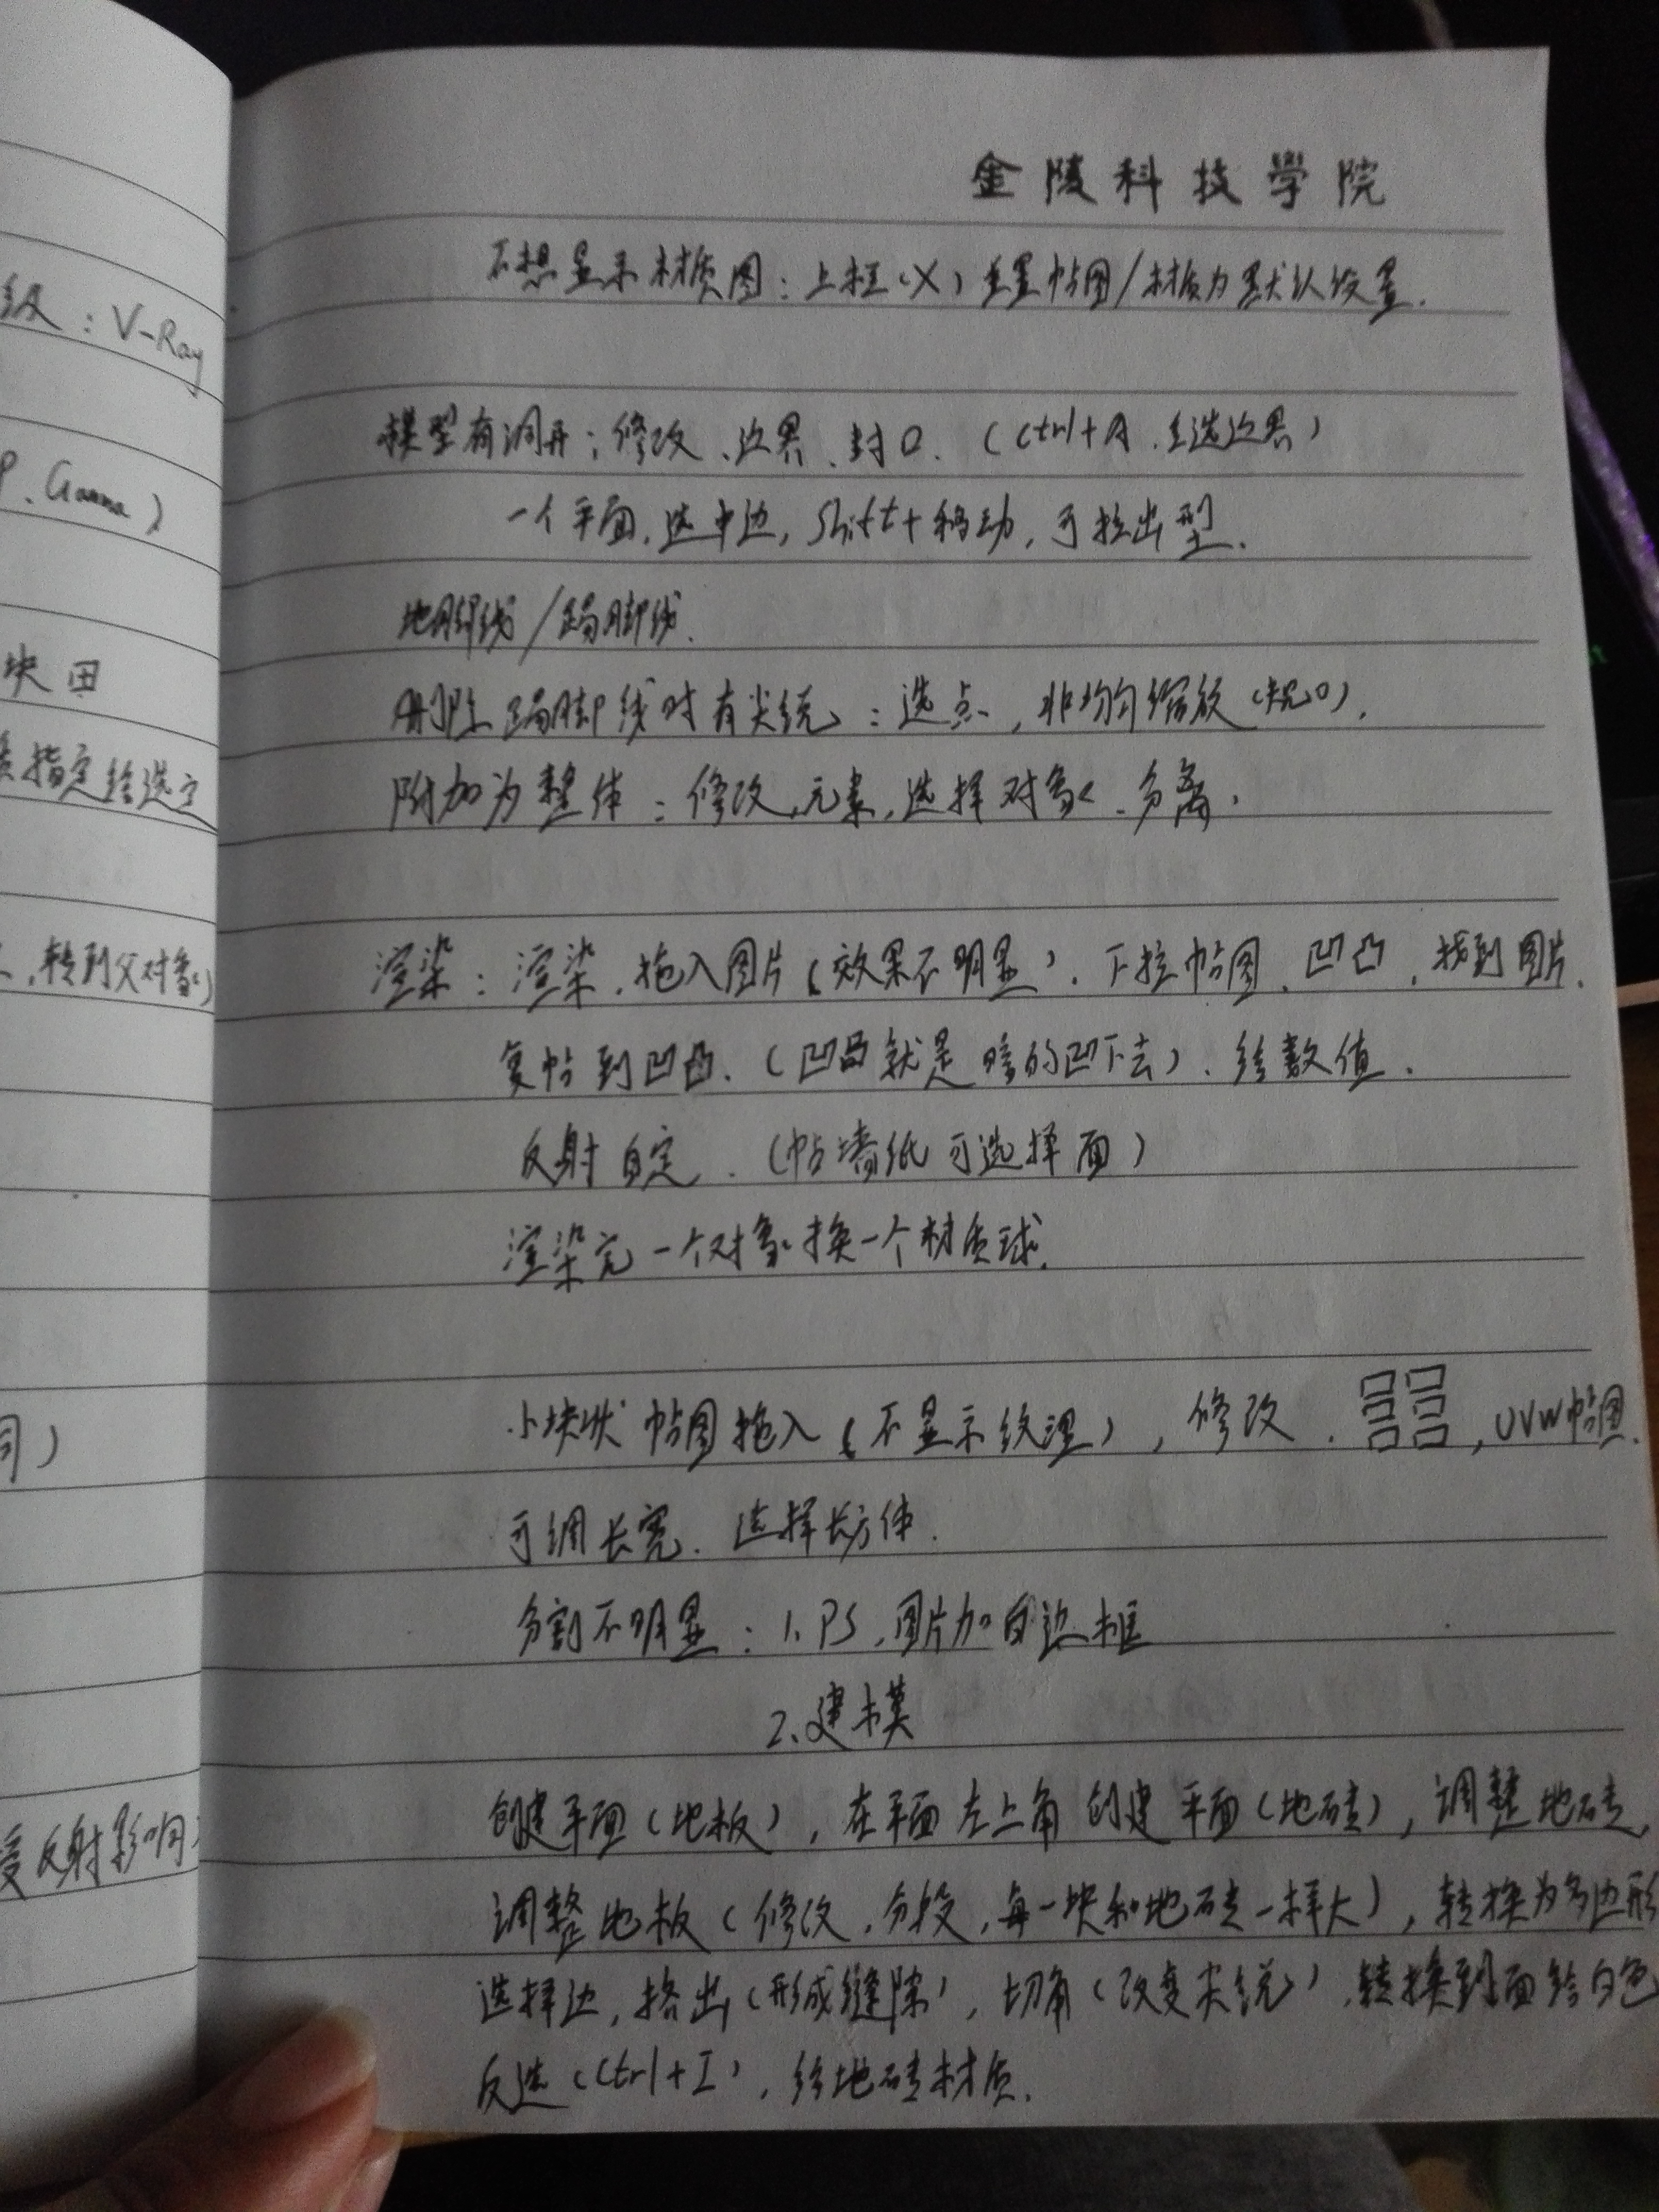 级：V-Ray
P、Gamma）
块田
指定给选定
、转到父对象）
同）
受反射影响
金陵科技學院
不想显示材质图：上框（X）重置帖图/材质为默认设置．
模型有洞开：修改、边界、封口．（Ctrl+A．全选边界）
一个平面，选中边，Shift+移动，可拉出型．
地脚线/踢脚线．
删除踢脚线时有尖锐：选点，非均匀缩放
附加为整体：修改，元素，选择对象．分离．
渲染：渲染．拖入图片（效果不明显）．下拉帖图．凹凸，找到图片．
复帖到凹凸．（凹凸就是暗的凹下去）．给数值．
反射自定．（帖墙纸可选择面）
渲染完一个对象换一个材质球．
小块状帖图拖入（不显示纹理），修改．，UVW帖图．
可调长宽．选择长方体．
分割不明显：1、PS，图片加白边框
2、建模
创建平面（地板），在平面左上角创建平面（地砖），调整地砖，
调整地板（修改．分段，每一块和地砖一样大），转换为多边形
选择边，挤出（形成缝隙），切角（改变尖锐）．转换到面给白色
反选（Ctrl+I），给地砖材质．